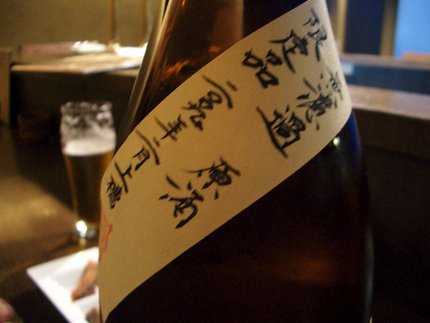 限定品
無濾過 原酒
二〇〇九年二月上槽